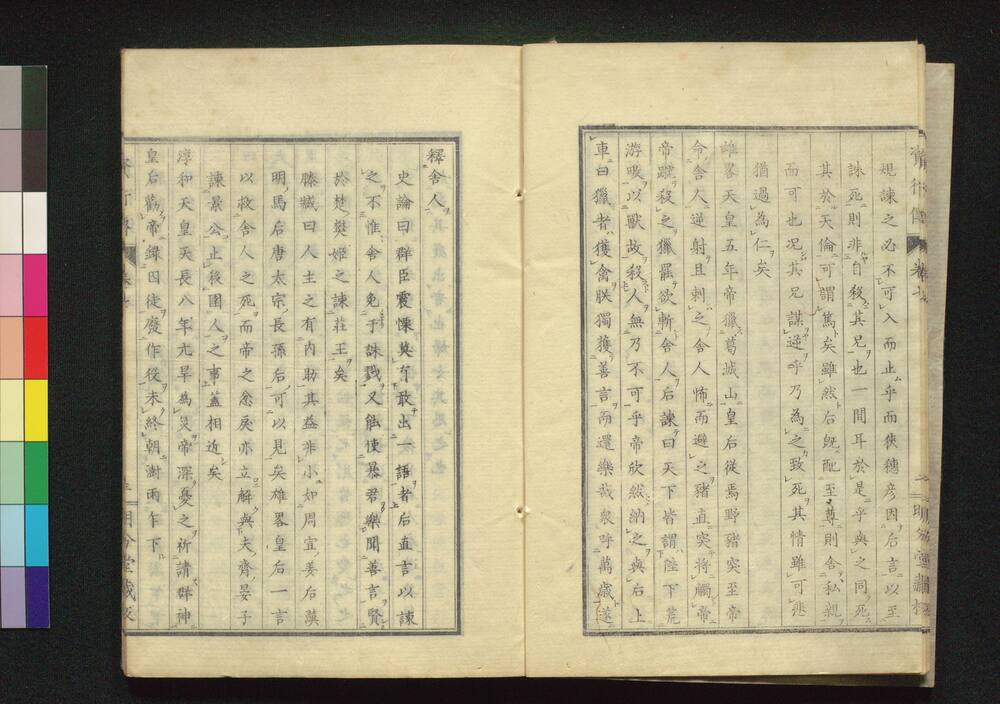 規諫之必不可入而止乎而狹穗彥因后言以至
誅死則非自殺其兄也一間耳於是乎與之同死
其於天倫可謂篤矣雖然后既配至尊則舍私親
而可也況其兄謀逆乎乃為之致死其情雖可悲
猶過為仁矣
雄畧天皇五年帝獵葛城山皇后從焉野豬突至帝
令舍人逆射且刺之舍人怖而避之豬直突將觸帝
帝蹤殺之獵罷欲斬舍人后諫曰天下皆謂陛下荒
游畋以獸故殺人無乃不可乎帝欣然納之與后上
車曰獵者獲禽朕獨獲善言而還樂哉衆呼萬歲遂
釋舍人
史論曰群臣震慄莫有敢出一語者后直言以諫
之不惟舍人免于誅戮又能使暴君樂聞善言賢
於楚樊姬之諫莊王矣
滕臧曰人主之有內助其益非小如周宣姜后漢
明馬后唐太宗長孫后可以見矣雄畧皇后一言
以救舍人之死而帝之忿戾亦立解與夫齊晏子
諫景公止殺圉人之事蓋相近矣
淳和天皇天長八年亢旱為災帝深憂之祈請群神
皇后勸帝錄囚徒廢作役未終朝澍雨乍下